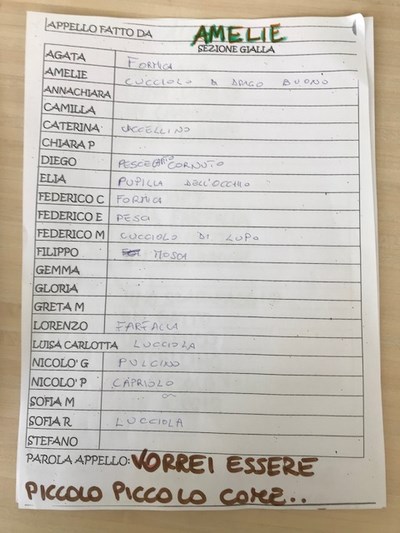 APPELLO FATTO DA AMELIE
SEZIONE GIALLA
AGATA FORMICA
AMELIE CUCCIOLO DI DRAGO BUONO
ANNACHIARA
CAMILLA
CATERINA UCCELLINO
CHIARA P
DIEGO PESCE CORNUTO
ELIA PUPILLA DELL'OCCHIO
FEDERICO C FORMICA
FEDERICO E PESCI
FEDERICO M CUCCIOLO DI LUPO
FILIPPO MOSCA
GEMMA
GLORIA
GRETA M
LORENZO FARFALLA
LUISA CARLOTTA LUCCIOLA
NICOLO' G PULCINO
NICOLO' P CAPRIOLO
SOFIA M
SOFIA R LUCCIOLA
STEFANO
PAROLA APPELLO: VORREI ESSERE
PICCOLO PICCOLO COME..